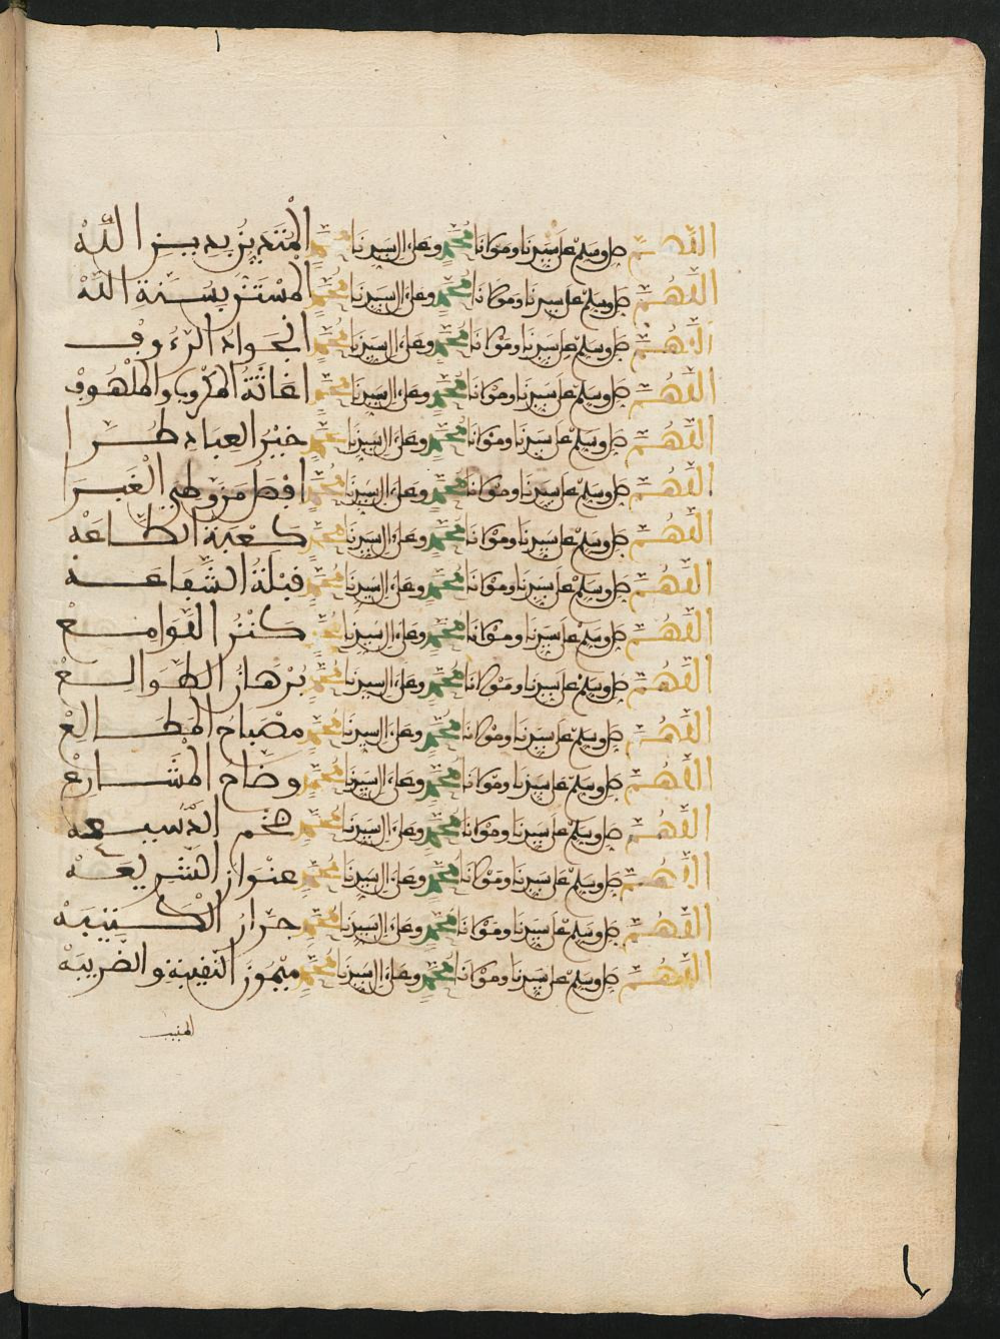 اللهم صل وسلم على سيدنا ومولانا محمد وعلى ال سيدنا محمد المتدين بدين الله
اللهم صل وسلم على سيدنا ومولانا محمد وعلى ال سيدنا محمد المستن بسنة الله
اللهم صل وسلم على سيدنا ومولانا محمد وعلى ال سيدنا محمد الجواد الرءوف
اللهم صل وسلم على سيدنا ومولانا محمد وعلى ال سيدنا محمد اغاثة المكروب والملهوف
اللهم صل وسلم على سيدنا ومولانا محمد وعلى ال سيدنا محمد خير العباد طرا
اللهم صل وسلم على سيدنا ومولانا محمد وعلى ال سيدنا محمد افضل من وطئ الغبرا
اللهم صل وسلم على سيدنا ومولانا محمد وعلى ال سيدنا محمد كعبة الطاعه
اللهم صل وسلم على سيدنا ومولانا محمد وعلى ال سيدنا محمد قبلة الشفاعه
اللهم صل وسلم على سيدنا ومولانا محمد وعلى ال سيدنا محمد كنز اللوامع
اللهم صل وسلم على سيدنا ومولانا محمد وعلى ال سيدنا محمد برهان الطوالع
اللهم صل وسلم على سيدنا ومولانا محمد وعلى ال سيدنا محمد مصباح المطالع
اللهم صل وسلم على سيدنا ومولانا محمد وعلى ال سيدنا محمد وضاح المشارع
اللهم صل وسلم على سيدنا ومولانا محمد وعلى ال سيدنا محمد ضخم الدسيعه
اللهم صل وسلم على سيدنا ومولانا محمد وعلى ال سيدنا محمد عنوان الشريعه
اللهم صل وسلم على سيدنا ومولانا محمد وعلى ال سيدنا محمد جرار الكتيبه
اللهم صل وسلم على سيدنا ومولانا محمد وعلى ال سيدنا محمد ميمون النقيبة والضريبه